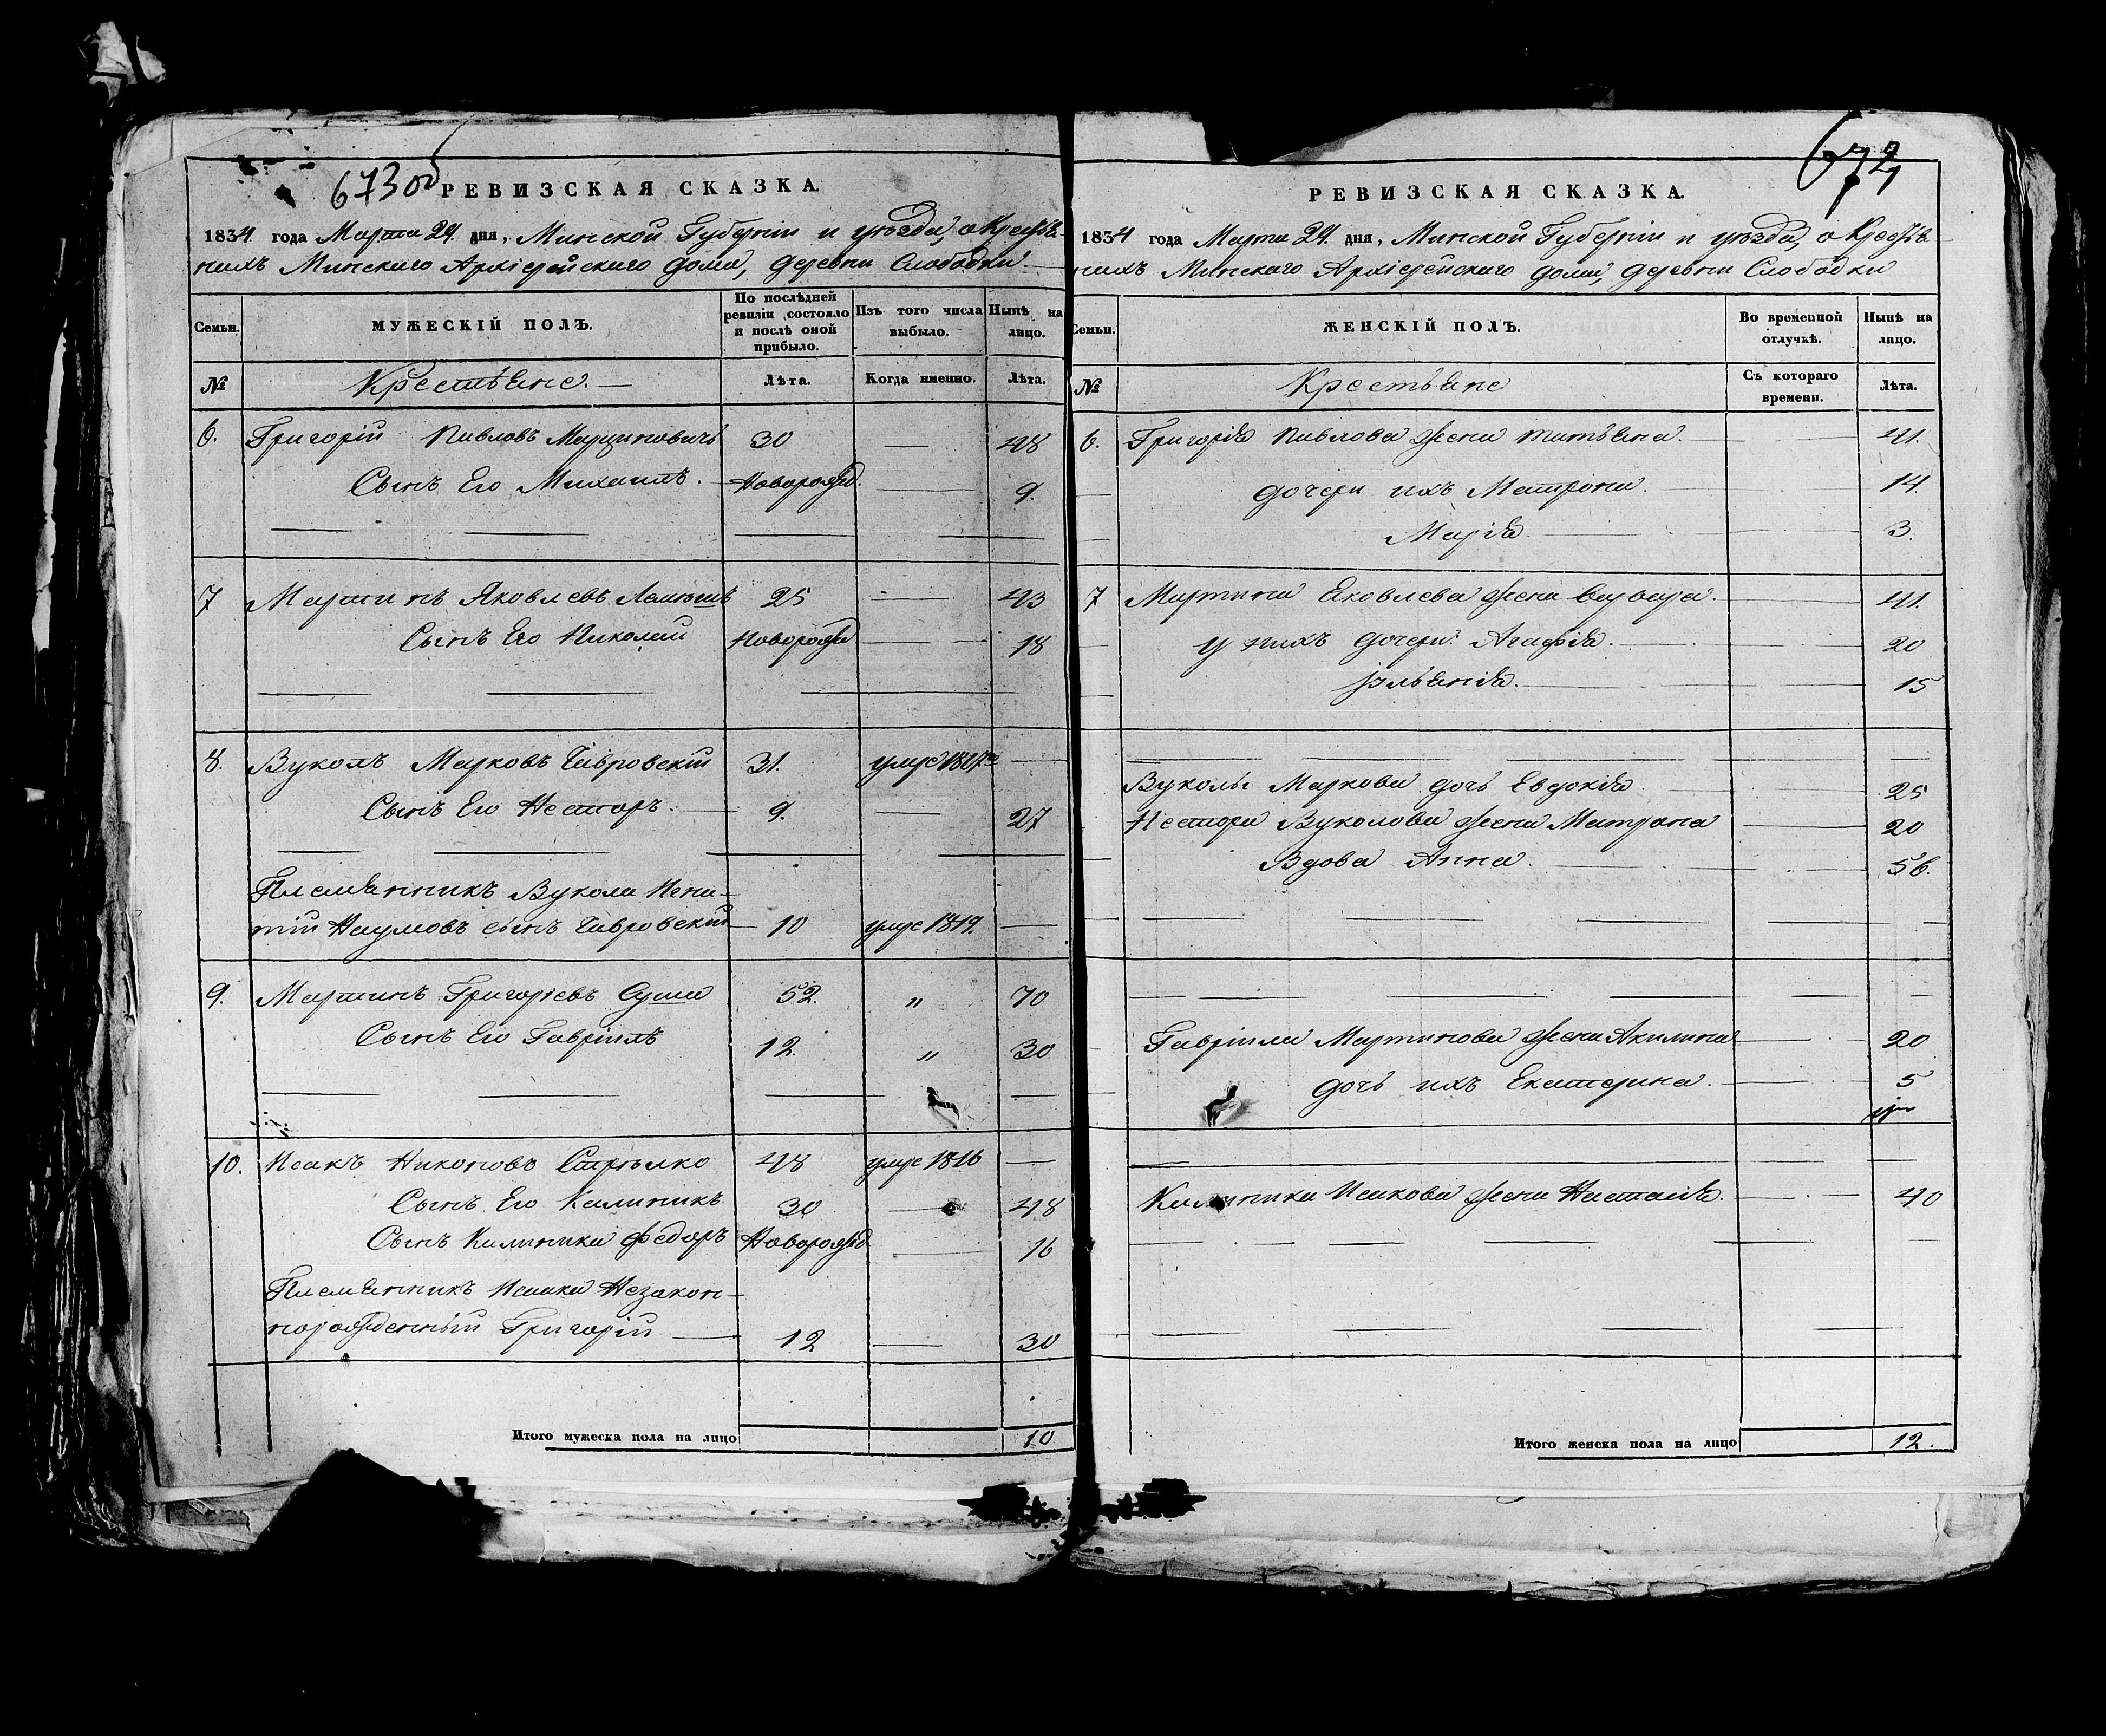 673 об
РЕВИЗСКАЯ СКАЗКА.
1834 года Марта 24 дня, Минской Губерніи и уѣзда, о Крестья-
нахъ Минскаго Архіерейскаго дома, деревни Слободки
Семьи. МУЖЕСКІЙ ПОЛЪ. По послѣдней ревизіи состояло и послѣ оной прибыло. Изъ того числа выбыло. Нынѣ на лицо.
№ Крестьяне. Лѣта. Когда именно. Лѣта.
6. Григорій Павловъ Марциновичъ 30 — 48
Сынъ Его Михаилъ. Новорожд — 9.
7 Мартинъ Яковлевъ 25 — 43
Сынъ Его Николай Новорожд — 18
8. Вуколъ Марковъ 31. умре 1827го —
Сынъ Его Несторъ. 9. — 27
Племянникъ Вукола Игна-
тій Наумовъ сынъ 10 умре 1819. —
9. Мартинъ Григорьевъ Суша 52. „ 70
Сынъ Его Гавріилъ 12 „ 30
10. Исакъ Никоновъ Стрѣлко 48 умре 1816 —
Сынъ Его Калиникъ 30 — 48
Сынъ Калиника Федоръ Новорожд — 16
Племянникъ Исака Незакон-
норожденный Григорій — 12 — 30
Итого мужеска пола на лицо 10
672
РЕВИЗСКАЯ СКАЗКА.
1834 года Марта 24 дня, Минской Губерніи и уѣзда, о Крестья-
нахъ Минскаго Архіерейскаго дома, деревни Слободки
Семьи. ЖЕНСКІЙ ПОЛЪ. Во временной отлучкѣ. Нынѣ на лицо.
№ Крестьяне Съ котораго времени. Лѣта.
6. Григорія Павлова жена Татьяна. 41.
дочери ихъ Матрона. 14.
Марія 3.
7 Мартина Яковлева жена Варвара. 41.
у нихъ дочери Агафія. 20
Ульянія. 15
Вуколы Маркова дочь Евдокія. 25
Нестора Вуколова жена Матрона 20
Вдова Анна. 56.
Гавріила Мартинова жена Акилина 20
дочь ихъ Екатерина. 5
Калиника Исакова жена Настасія. 40
Итого женска пола на лицо 12.